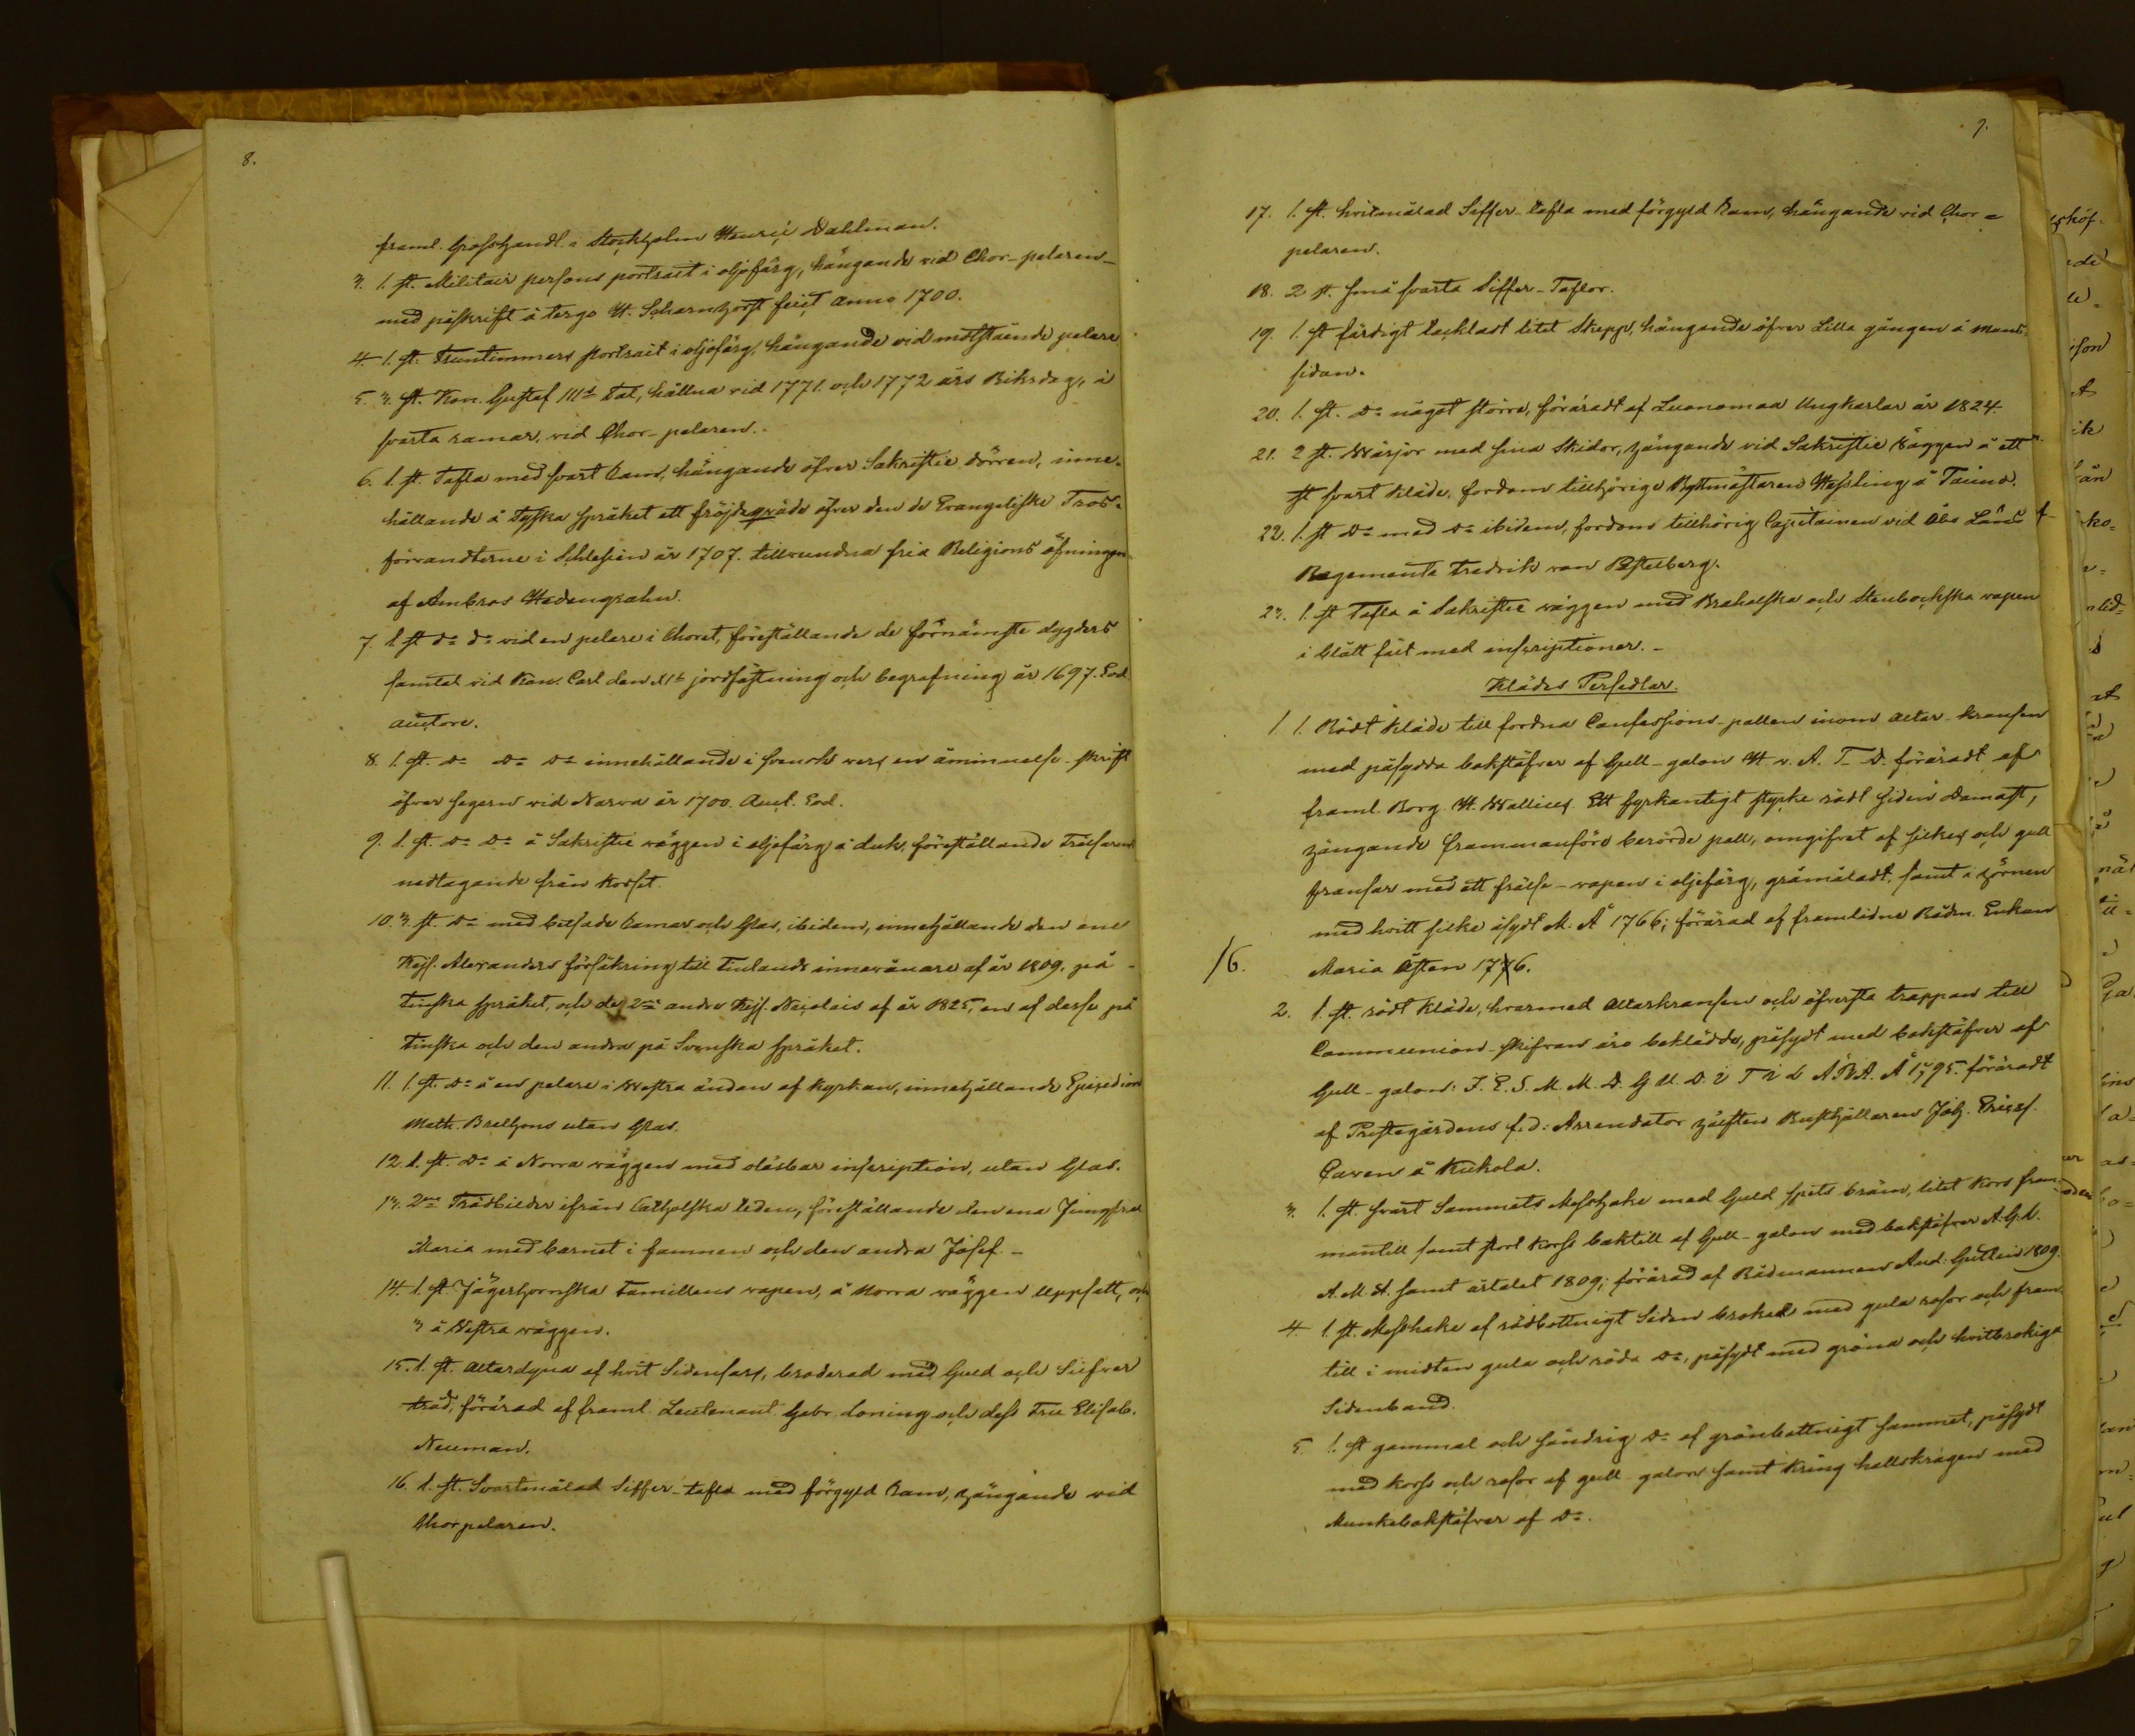 8.
framl. Grosshandl. i Stockholm Henric Dahlman.
3. 1. st. Militair persons portrait i oljofärg, hängande vid Chor-pelaren
med påskrift å tergo H. Scharnhorst fecit anno 1700.
4. 1. st. Fruntimmers portrait i oljofärg, hängande vid motstående pelare
5. 3. st. Kon. Gustaf III:s Tal, hållna vid 1771. och 1772 års Riksdag, i
svarta ramar, vid Chor-pelaren.
6. 1. st. Tafla med svart Ram, hängande öfver Sakristie dörren, inne-
hållande å Tyska språket ett fröjdeqväde öfver den de Evangeliske Tros-
förvandterne i Schlesien år 1707. tillvundna fria Religions öfningen
af Ambros Hedengrahn.
7. 1. st d:o d:o vid en pelare i Choret, föreställande de förnämste dygders
samtal vid Kon. Carl den XI:s jordfästning och begrafning år 1697. Eod
auctore.
8. 1. st. d:o d:o d:o innehållande i svensk vers en åminnelse-skrift
öfver segern vid Narva år 1700. Auct. Eod.
9. 1. st. d:o d:o å Sakristie väggen i oljofärg å duk, föreställande Frälsarens
nedtagande från Korset.
10. 3. st. d:o med betsade Ramar och Glas, ibidem, innehållande den ene
Kejs. Alexanders försäkring till Finlands innevånare af år 1809. på
Finska språket, och de 2:ne andre Kejs. Nicolais af år 1825, en af desse på
Finska och den andra på Svenska språket.
11. 1. st. d:o å en pelare i Westra ändan af Kyrkan, innehållande Epicedion
Math. Brelhons utan Glas.
12. 1. st. d:o å Norra väggen med oläsbar inscription, utan Glas.
13. 2:ne Trädbilder ifrån Catholska tiden, föreställande den ena Jungfru
Maria med barnet i famnen och den andra Josef.
14. 1. st. Jägerhornska Familiens vapen, å Norra väggen uppsatt, och
3 å Westra väggen.
15. 1. st. Altardyna af hvit Sidensars, broderad med Guld och Silfver
tråd, förärad af framl. Leutenant Gabr. Loning och dess Fru Elisab.
Neuman.
16. 1. st. Svartmålad Siffer-tafla med förgyld Ram, hängande vid
Chorpelaren.
9.
17. 1. st. hvitmålad Siffer-tafla med förgyld Ram, hängande vid Chor-
pelaren.
18. 2 st. små svarta Siffer-Taflor.
19. 1. st färdigt tackladt litet Skepp, hängande öfver Lilla gången å mans
sidan.
20. 1. st. d:o något större, föräradt af Luonomaa Ungkarlar år 1824.
21. 2 st. Wärjor med sina Skidor, hängande vid Sakristie Wäggen å ett
st svart Kläde, fordom tillhörige Ryttmästaren Hessling å Taimo.
22. 1. st d:o med d:o ibidem, fordom tillhörig Capitainen vid Åbo Läns
Regemente Fredrik von
23. 1. st Tafla å Sakristie väggen med Braheska och Stenbockska vapen
i blått fält med inscriptioner.
Klädes Persedlar.
1 1. Rödt Kläde till fordna Confessions-pallen inom altar-kransen
med påsydda bokstäfver af Gull-galon H. v. A. T. D. förärad af
framl. Borg. H. Wallius. Ett fyrkantigt stycke rödt siden Damast,
hängande frammanföre berörde pall, omgifvet af silkes och gull
fransar med ett frälse-vapen i oljefärg, gråmåladt, samt i hörnen
med hvitt silke åsydt M. Å 1766; förärad af framlidne Rådm. Enkan
/6. Maria Åsten 1776.
2. 1. st. rödt kläde, hvarmed altarkransen och öfversta trappan till
Communion-skifvan äro beklädde, påsydt med bokstäfver af
Gull-galon: J. E. S. M. M. D. G U. D. i T i L Å RA. Å 1795. föräradt
af Prestegårdens f.d: Arrendator häften Rusthållaren Joh. Ericss.
Caven å Kukola.
3. 1. st. svart Sammets Messhake med Guld spets bräm, litet Kors fram
mantill samt stort Korss baktill af Gull-galon med bokstäfver A. G. D.
A. M. H. samt årtalet 1809; förärad af Rådmannen And: Gutlein 1809.
4. 1. st. Messhake af rödbottnigt Siden brokad med gula rosor och fram
till i midten gula och röda d:o, påsydt med gröna och hvitbrokiga
Sidenband.
5. 1. st gammal och söndrig d:o af grönbottnigt sammet, påsydt
med korss och rosor af gull galon samt kring halskragen med
Munkebokstäfver af d:o.